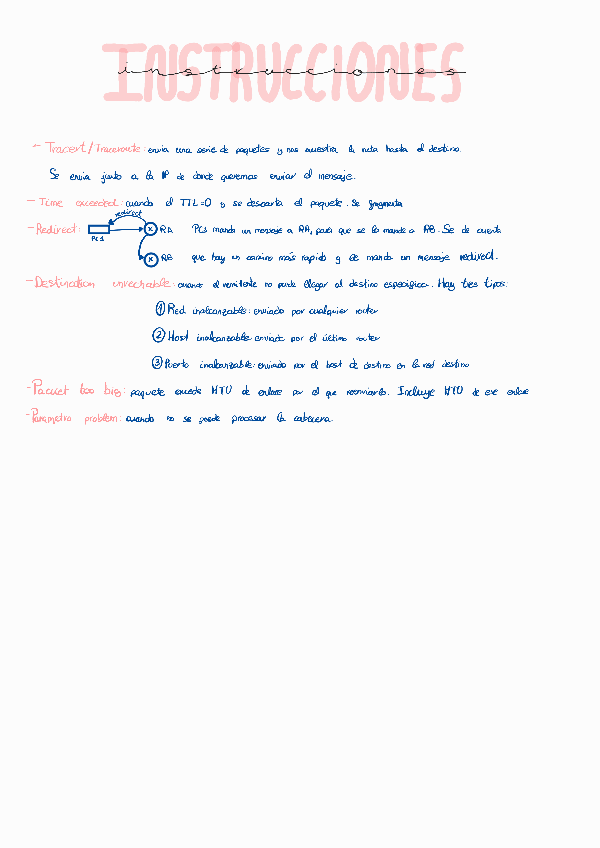 INSTRUCCIONES
instrucciones
- Tracert/Traceroute: envia una serie de paquetes y nos muestra la ruta hasta el destino.
Se envia junto a la IP de donde queremos enviar el mensaje.
- Time exceeded: cuando el TTL=0 y se descarta el paquete. Se fragmenta
redirect
- Redirect: PC1 X RA PC1 manda un mensaje a RA, para que se lo mande a RB. Se da cuenta
X RB que hay un camino más rapido y le manda un mensaje redirect.
- Destination unrechable: cuando el remitente no puede llegar al destino especifico. Hay tres tipos:
① Red inalcanzable: enviado por cualquier router
② Host inalcanzable: enviado por el último router
③ Puerto inalcanzable: enviado por el host de destino en la red destino
- Pacuet too big: paquete excede MTU de enlace por el que reenviarlo. Incluye MTU de ese enlace
- Parametro problem: cuando no se puede procesar la cabecera.